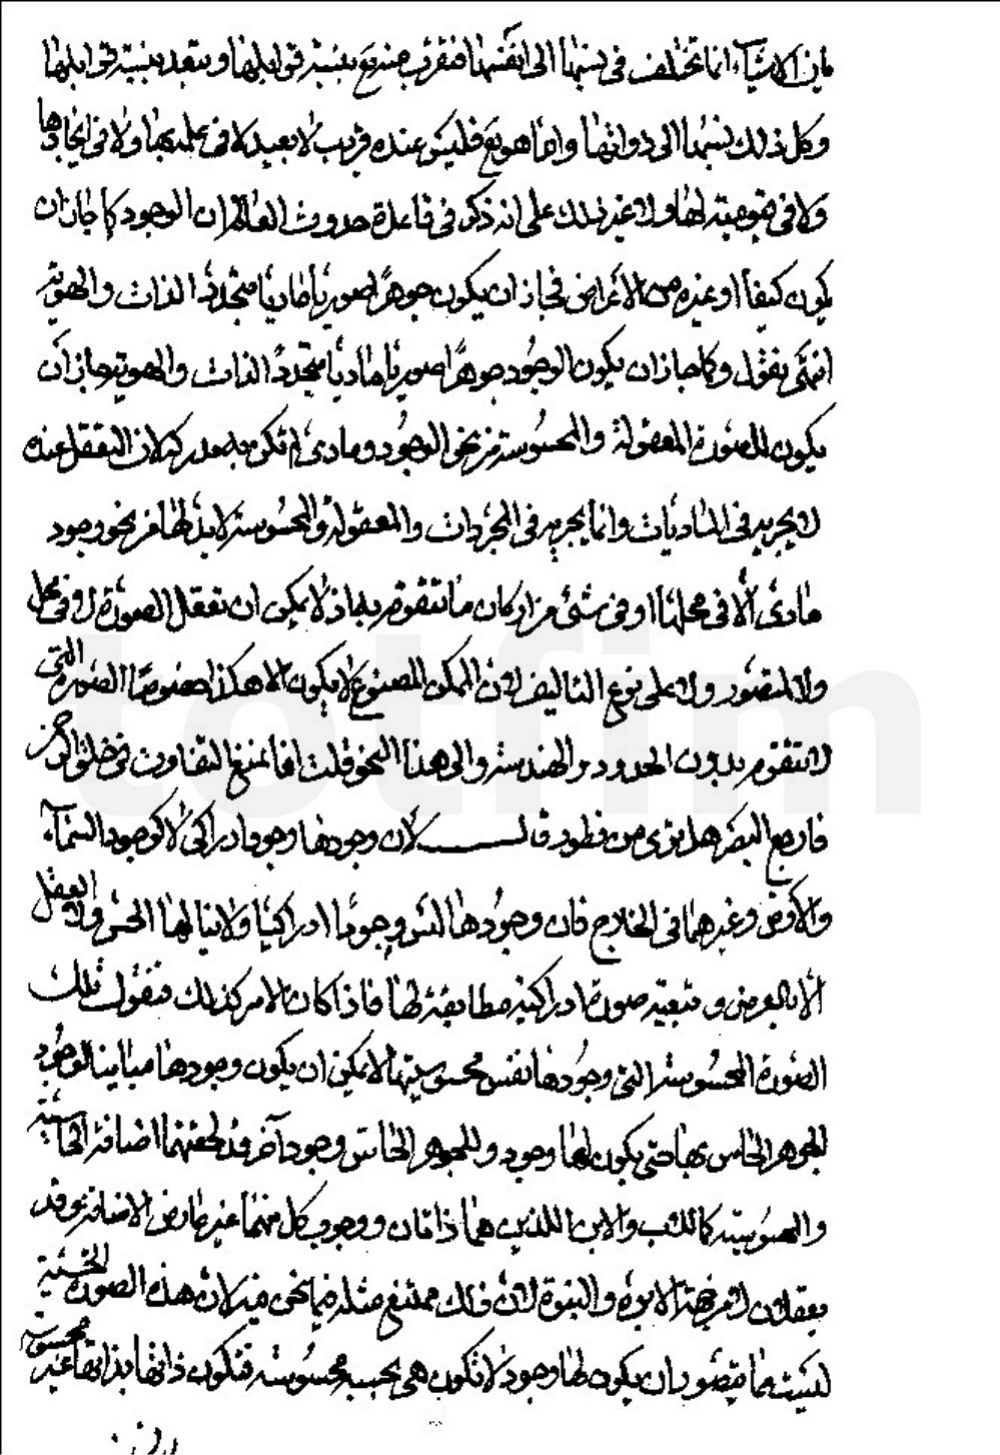 فان الاشياء انما تختلف في نسبتها الى انفسها فتقرب منه تع بنسبة قوابلها وتبعد بنسبة قوابلها
وكل ذلك نسبتها الى ذواتها واما هو تع فليس عنده قريب ولا بعيد لا في علمه بها ولا في ايجادها
ولا في قيوميته لها ولا غير ذلك على انه ذكر في قاعدة حدوث العالم ان الوجود كما جاز ان
يكون كيفا او غيره من الاعراض فجاز ان يكون جوهرا صوريا ماديا متجدد الذات والهوية
انتهى فنقول وكما جاز ان يكون الوجود جوهرا صوريا ماديا متجدد الذات والهوية جاز ان
يكون للصورة المعقولة والمحسوسة من نحو الوجود ومادي لم تكن به مدركة لان التعقل عنده
لا يجريه في الماديات وانما يجريه في المجردات والمعقولة والمحسوسة لابد لها من نحو وجود
مادي الا في محلها او في شيء من اركان ما تتقوم به اذ لا يمكن ان تعقل الصورة لا في محل
ولا تتصور ولا على نوع التاليف لان الممكن المصنوع لا يكون الا هكذا خصوصا الصورة التي
لا تتقوم بدون الحدود والهندسة والى هذا النحو قلت انا بمنع التفاوت في خلق الرحمن
فارجع البصر هل ترى من فطور قال لان وجودها وجود ادراكي لا كوجود السماء
والارض وغيرهما في الخارج فان وجودها ليس وجودا ادراكيا ولا ينالها الحس ولا العقل
الا بالعرض وبتبعية صورة ادراكية مطابقة لها فاذا كان الامر كذلك فنقول تلك
الصورة المحسوسة التي وجودها نفس محسوسيتها لا يمكن ان يكون وجودها مباينا لوجود
الجوهر الحاس بها حتى يكون لها وجود وللجوهر الحاس وجود آخر قد لحقتهما اضافة الحاسية
والمحسوسية كما للاب والابن اللذين هما ذاتان ووجود كل منهما غير عارض الاضافة وقد
يعقلان لا من جهة الابوة والبنوة لان ذلك ممتنع مثله فيما نحن فيه لان هذه الصورة الحسية
ليست مما يتصور ان يكون لها وجود لا تكون هي بحسبه محسوسة فتكون ذاتها بذاتها غير محسوسة